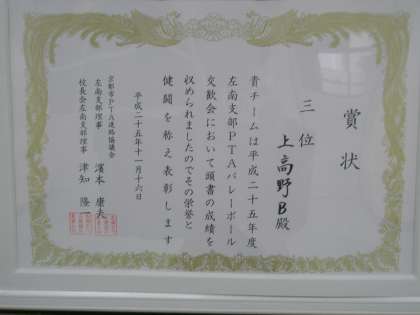 賞状
三位
上高野B殿
貴チームは平成二十五年度
左南支部PTAバレーボール
交歓会において頭書の成績を
収められましたのでその栄誉と
健闘を称え表彰します
平成二十五年十一月十六日
京都市PTA連絡協議会
左南支部理事 濱本 康夫
校長会左南支部理事 津知 隆